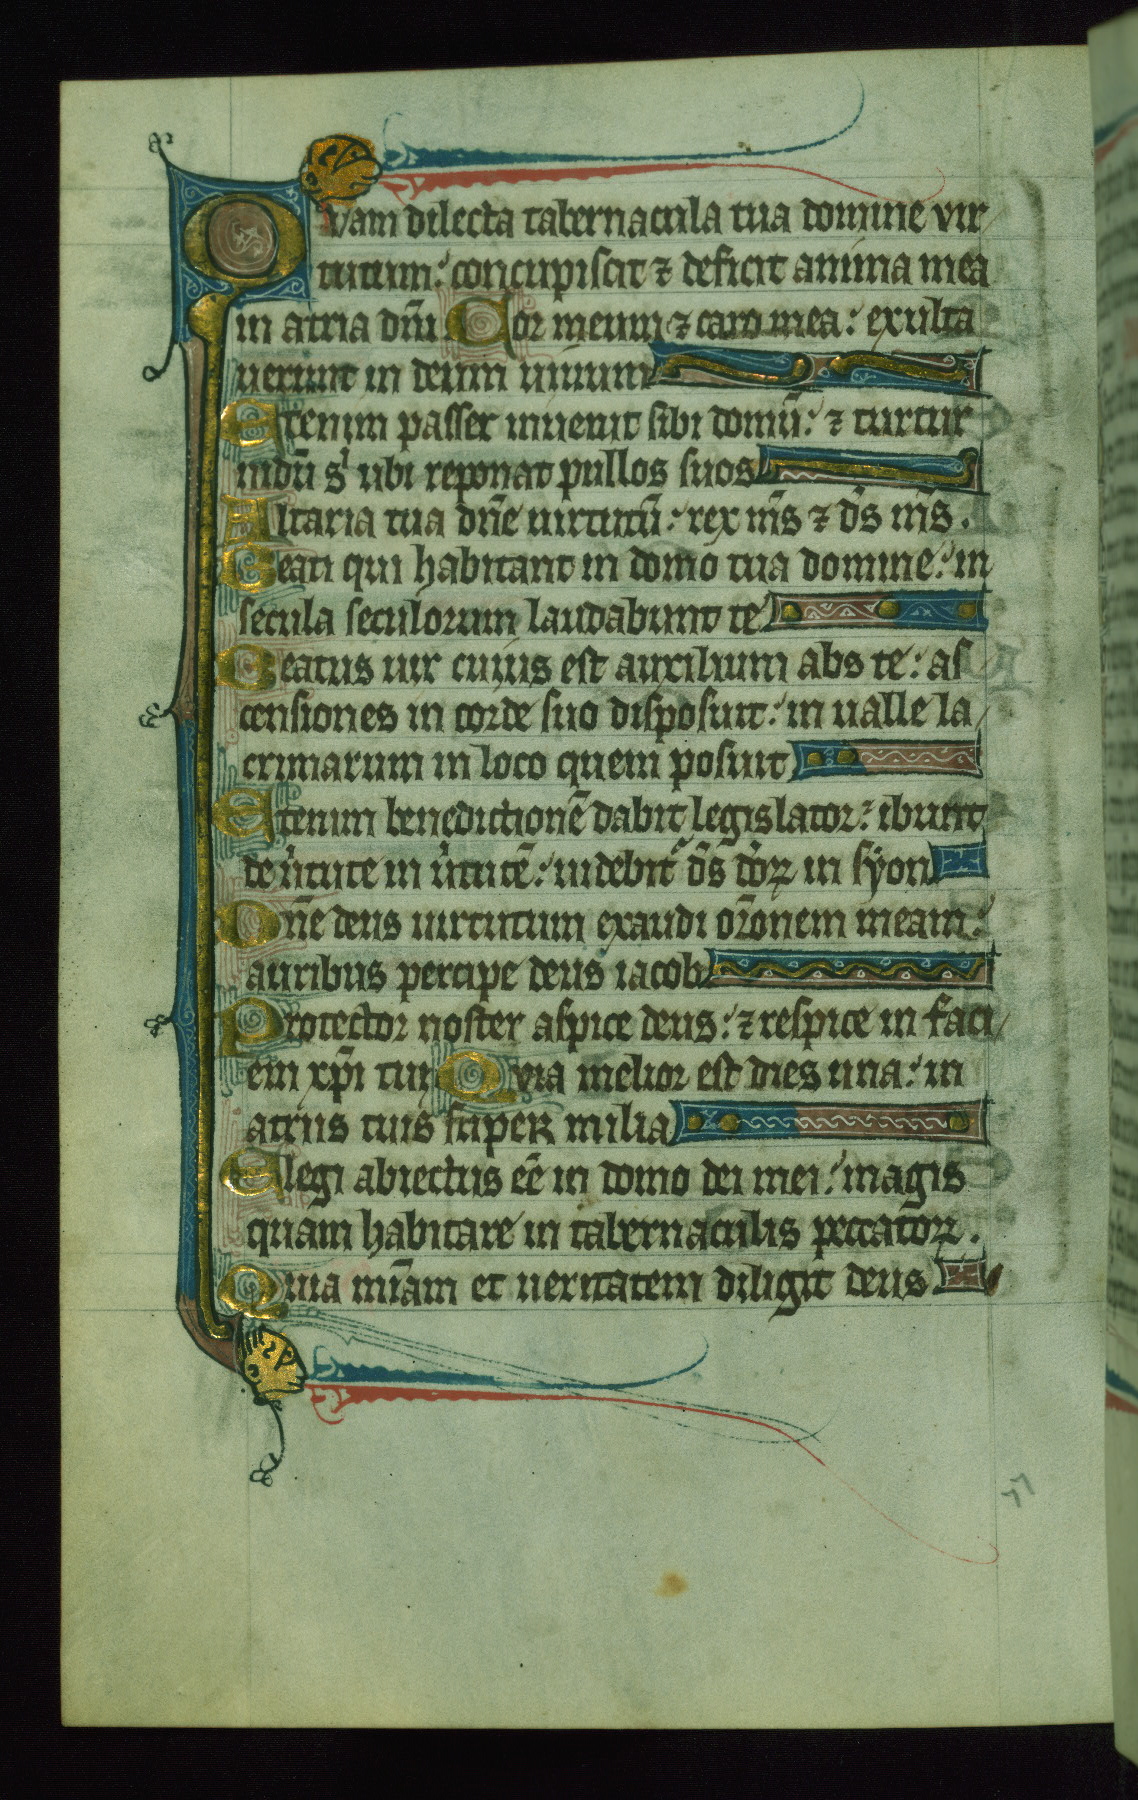 Quam dilecta tabernacula tua domine vir
tutum: concupiscit ⁊ deficit anima mea
in atria dn̄i Cor meum ⁊ caro mea: exulta
uerunt in deum uiuum
Etenim passer inuenit sibi domū: ⁊ turtur
nidū s' ubi reponat pullos suos
Altaria tua dn̄e uirtutū: rex m̄s ⁊ d̄s m̄s.
Beati qui habitant in domo tua domine: in
secula seculorum laudabunt te
Beatus uir cuius est auxilium abs te: as
censiones in corde suo disposuit: in ualle la
crimarum in loco quem posuit
Etenim benedictionē dabit legislator: ibunt
de u̔tute in u̔tutē: uidebit᷑ d̄s deoꝝ in syon
Dn̄e deus uirtutum exaudi or̄onem meam:
auribus percipe deus iacob
Protector noster aspice deus: ⁊ respice in faci
em xp̄i tui Quia melior est dies una: in
atriis tuis super milia
Elegi abiectus eē in domo dei mei: magis
quam habitare in tabernaculis peccatoꝝ.
Quia mīam et ueritatem diligit deus
77